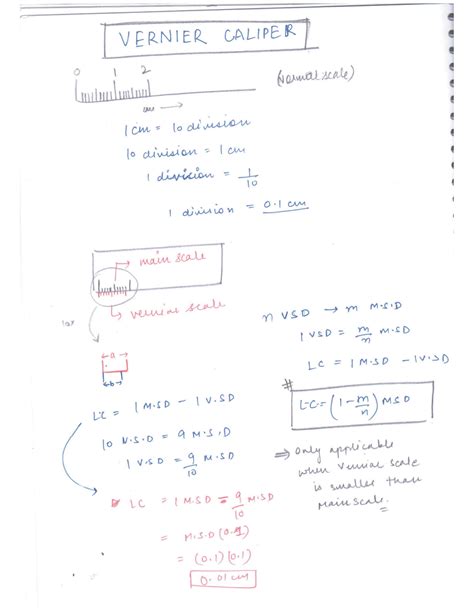 VERNIER CALIPER
0 1 2
(Normal scale)
cm →
1 cm = 10 division
10 division = 1 cm
1 division = 1/10
1 division = 0.1 cm
→ main scale
→ vernier scale
10x
← a →
← b →
LC = 1 M.S.D - 1 V.S.D
10 V.S.D = 9 M.S.D
1 V.S.D = 9/10 M.S.D
LC = 1 M.S.D - 9/10 M.S.D
= M.S.D (0.1)
= (0.1) (0.1)
0.01 cm
n VSD → m M.S.D
1 VSD = m/n M.S.D
LC = 1 M.S.D - 1 V.S.D
#
LC = (1 - m/n) MSD
⇒ Only applicable
when vernier scale
is smaller than
Main scale.